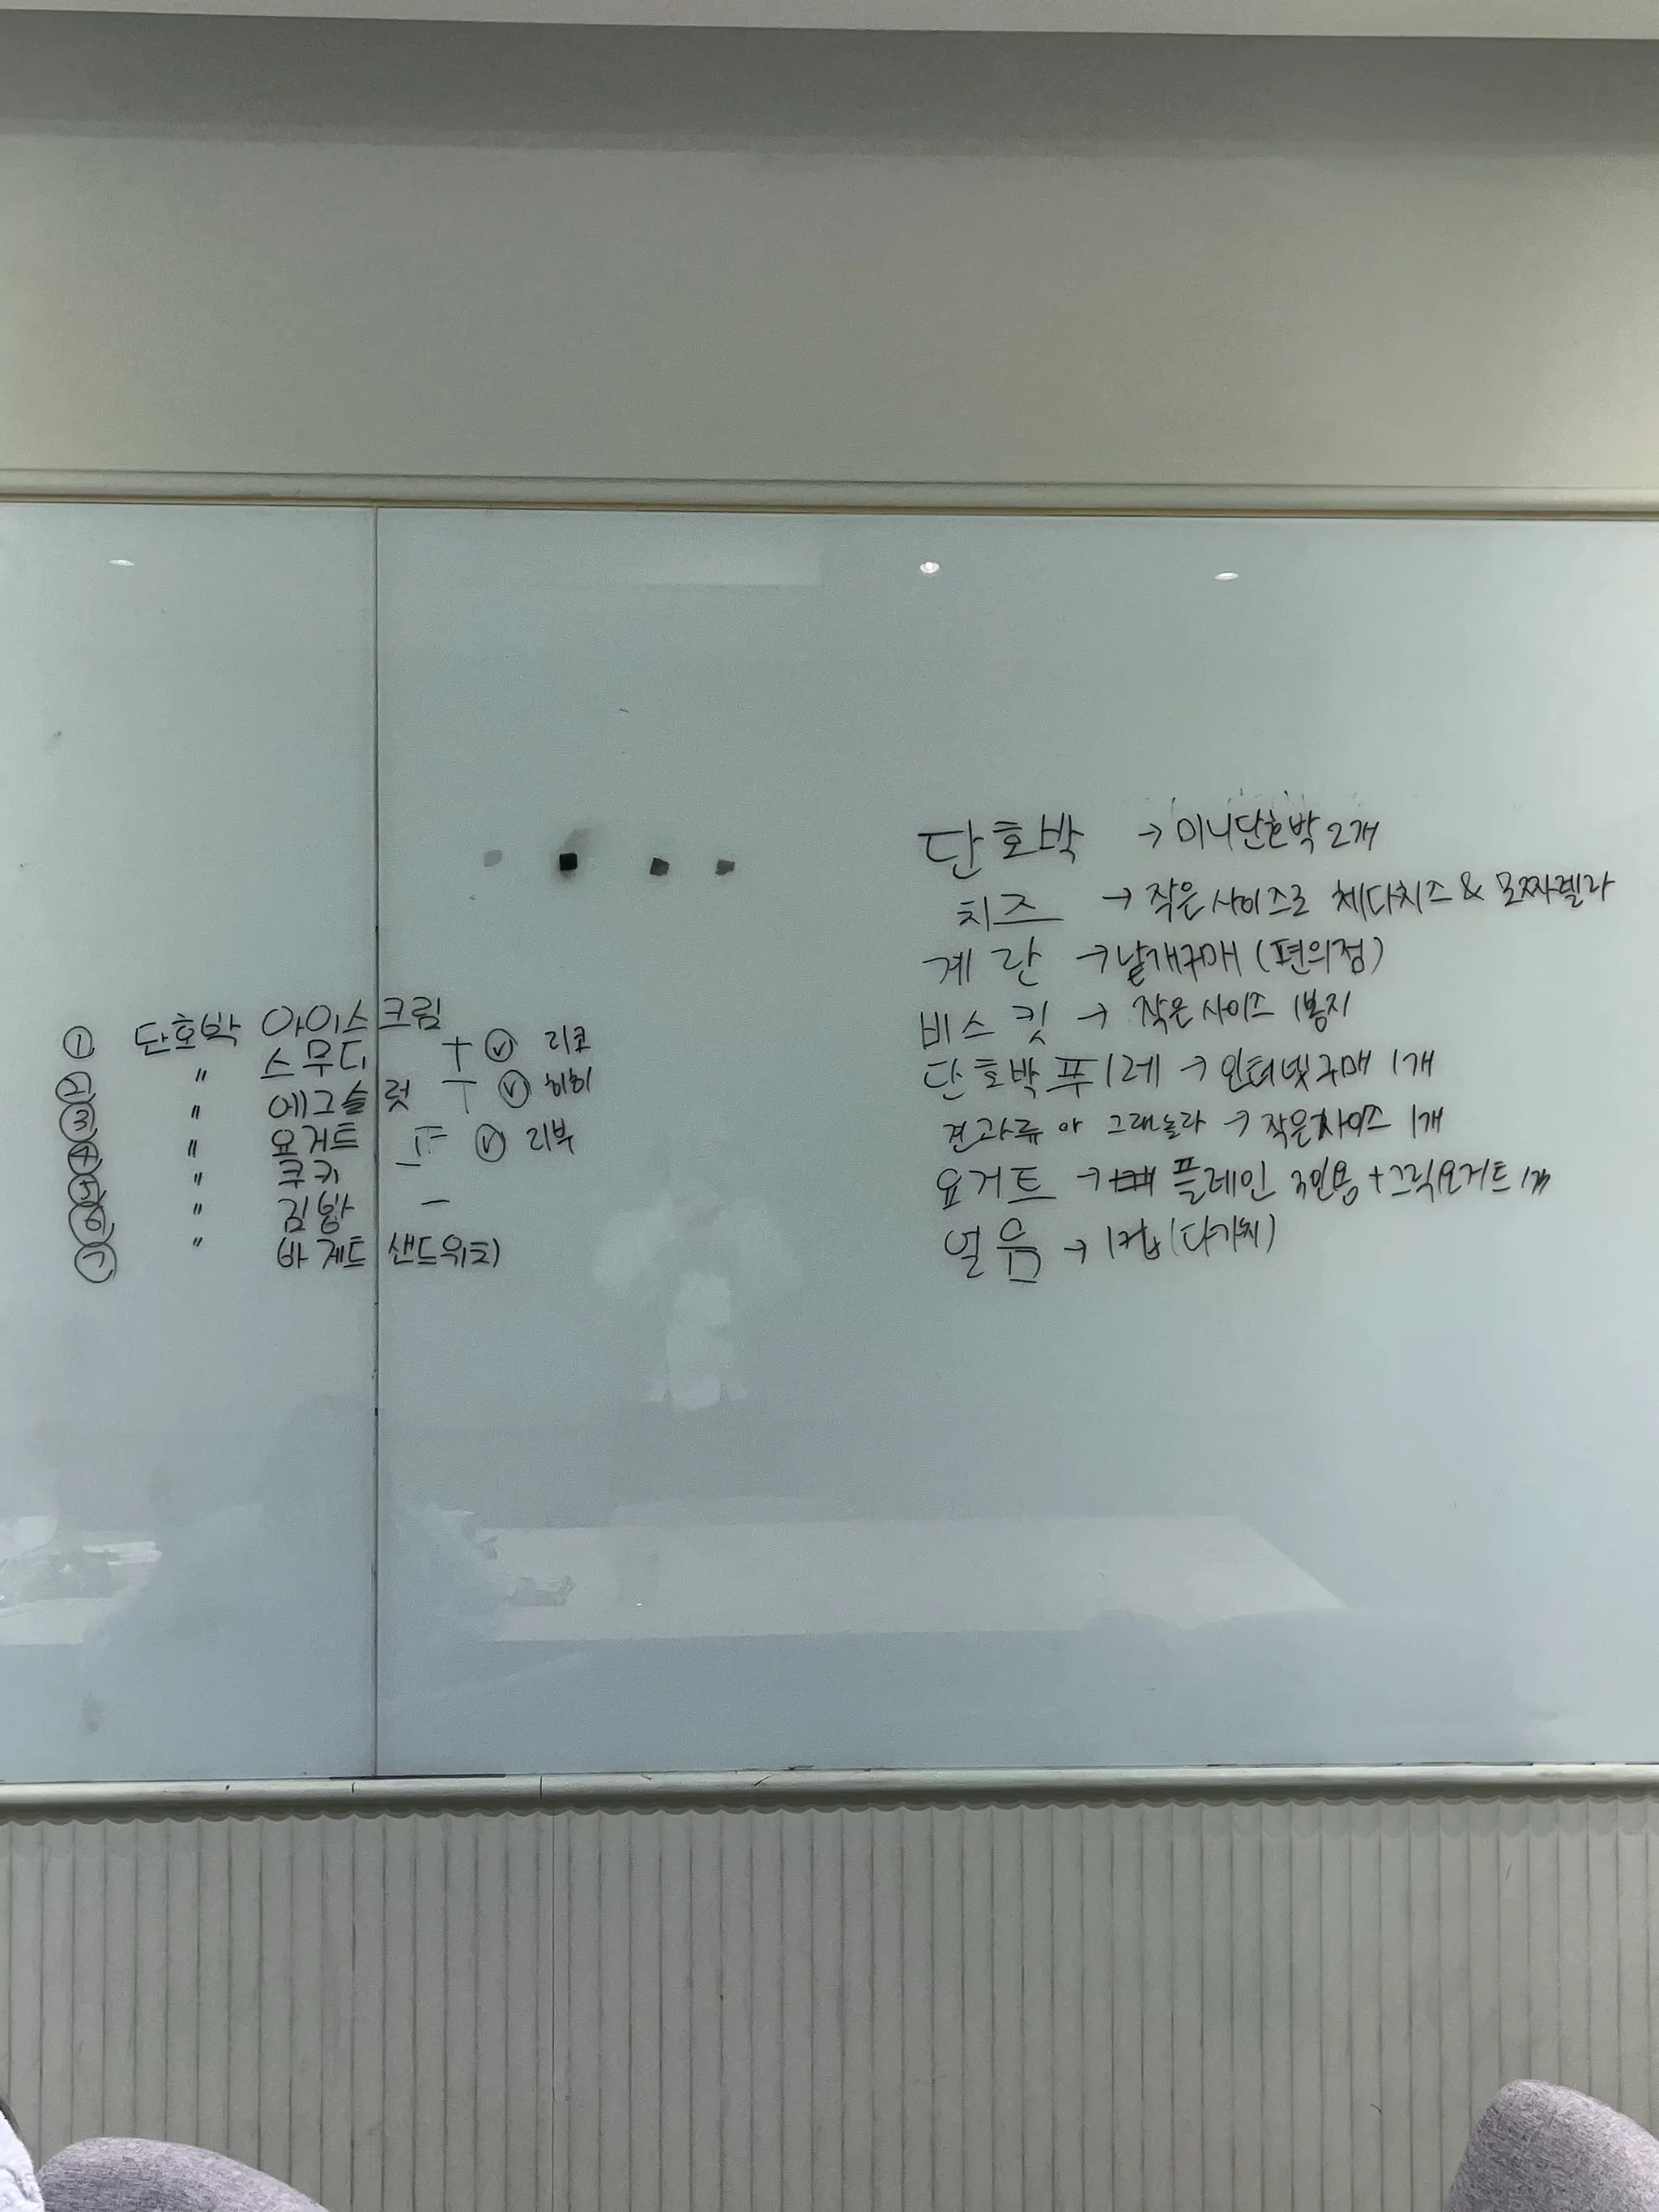 ① 단호박 아이스크림
② 〃 스무디 ㅜ ⓥ 리코
③ 〃 에그슬럿 ㅜ ⓥ 히히
④ 〃 요거트 ⓥ 리부
⑤ 〃 쿠키 ㅡ
⑥ 〃 김밥 ㅡ
⑦ 〃 바게트 샌드위치
단호박 → 미니단호박 2개
치즈 → 작은 사이즈로 체다치즈 & 모짜렐라
계란 → 낱개구매 (편의점)
비스킷 → 작은 사이즈 1봉지
단호박 푸레 → 인터넷구매 1개
견과류 아 그래놀라 → 작은사이즈 1개
요거트 → 플레인 3인용 + 그릭요거트 1개
얼음 → 1컵 (다가치)